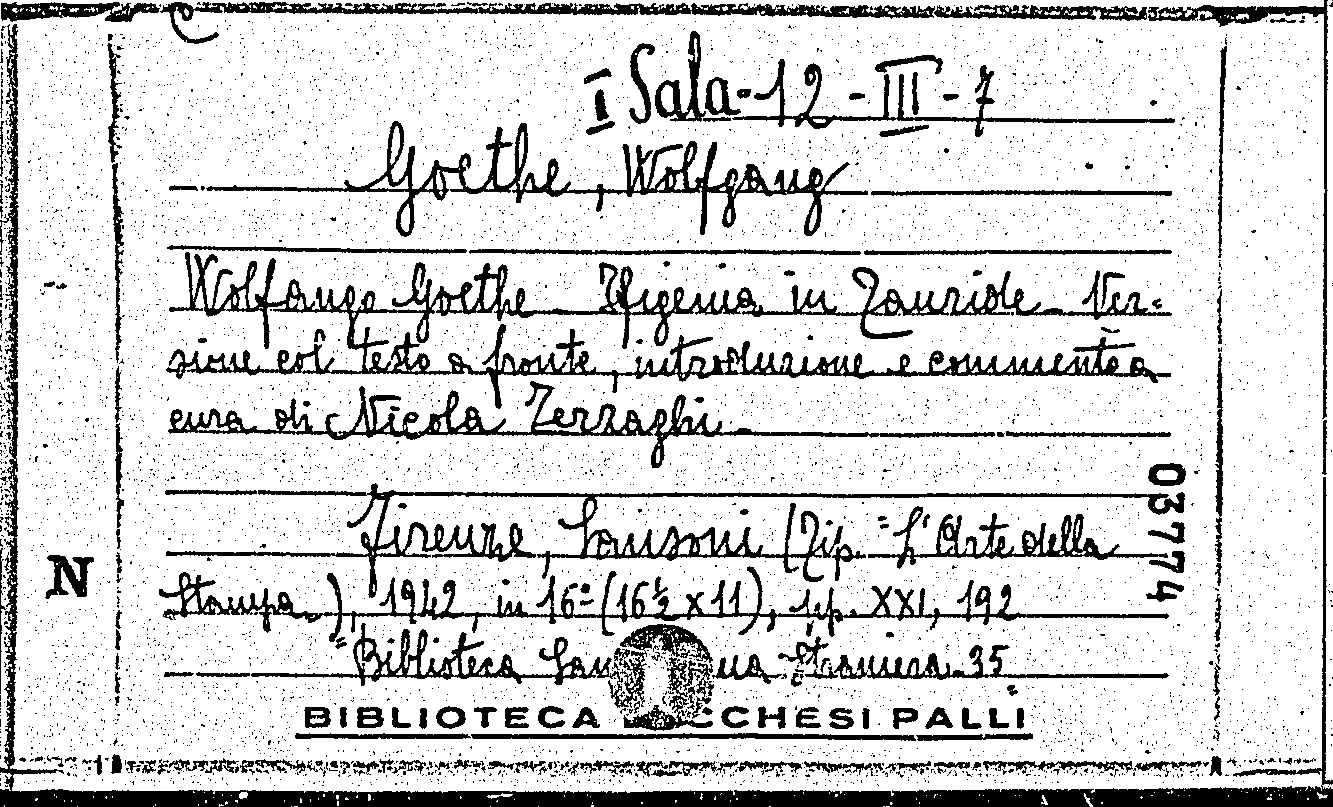 I Sala-12-III-7
Goethe, Wolfgang
Wolfango Goethe - Ifigenia in Tauride - Ver=
sione col testo a fronte, introduzione e commento a
cura di Nicola Terzaghi -
Firenze, Sansoni (Tip. "L'Arte della
Stampa"), 1942, in 16° (16½ x 11), pp. XXI, 192
"Biblioteca Straniera - 35"
BIBLIOTECA PALLI
N
03774